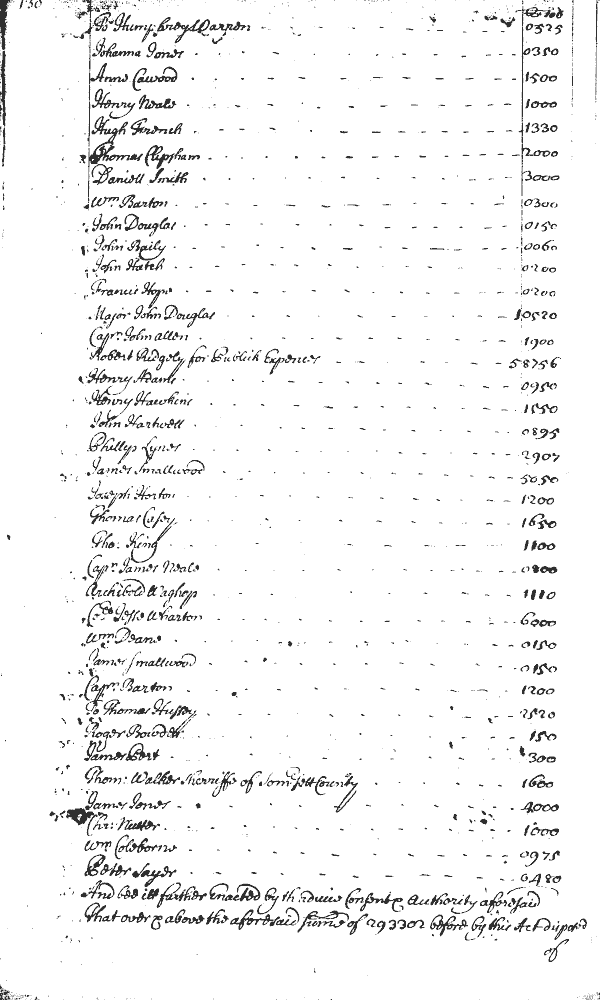 130
To Humphrey Warren 0525
Johanna Jones 0350
Anne Cawood 1500
Henry Neale 1000
Hugh French 1330
Thomas Clipsham 2000
Daniell Smith 3000
Wm Barton 0300
John Douglas 0150
John Baily 0060
John Hatch 0200
Francis Hope 0200
Major John Douglas 10520
Capt. John allen 1900
Robert Ridgely for Publick Expences 58756
Henry Adams 0950
Henry Hawkins 1550
John Hartwell 0895
Phillyp Lynes 2907
James Smallwood 5050
Joseph Horton 1200
Thomas Casey 1650
Tho: King 1100
Capt. James Neale 0800
Archibold Waghop 1110
Coll Jesse Wharton 6000
Wm Deane 0150
James Smallwood 0150
Capt. Barton 1200
To Thomas Hussey 2520
Roger 150
James 300
Thom: Walker Sherriffe of Somersett County 1600
James Jones 4000
Chr: Nutter 1000
Wm Coleborne 0975
Peter Sayer 6480
And bee itt farther enacted by th advice Consent & Authority aforesaid
That over & above the aforesaid summe of 293302 before by this Act disposed
of